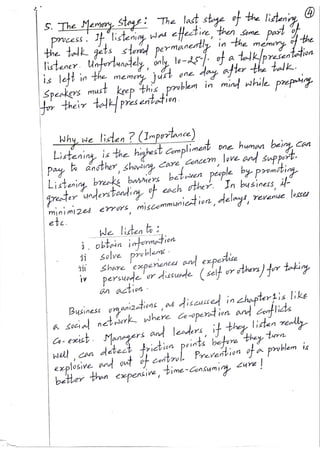 4
5. The Memory Stage: The last stage of the listening
process. If listening was effective, then some part of
the talk gets stored permanently in the memory of the
listener. Unfortunately, only 10-25% of a talk/presentation
is left in the memory just one day after the talk.
Speakers must keep this problem in mind while preparing
for their talk/presentation.
Why we listen? (Importance)
Listening is the highest compliment one human being can
pay to another, showing care, concern, love and support.
Listening breaks barriers between people by promoting
greater understanding of each other. In business, it
minimizes errors, miscommunication, delays, revenue losses
etc.
We listen to:
i. obtain information
ii solve problems.
iii share experiences and expertise
iv persuade or dissuade (self or others) for taking
an action.
Business organizations, as discussed in chapter 1 is like
a social network where co-operation and conflicts
co-exist. Managers and leaders, if they listen really
well, can detect friction points before they turn
explosive and out of control. Prevention of a problem is
better than expensive, time-consuming cure!